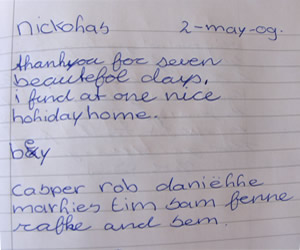 nickolas 2-may-09.
thankyou for seven
beautefol days,
i find at one nice
holiday home.
bey
casper rob daniëlle
marlies tim sam fenne
rafke and sem.